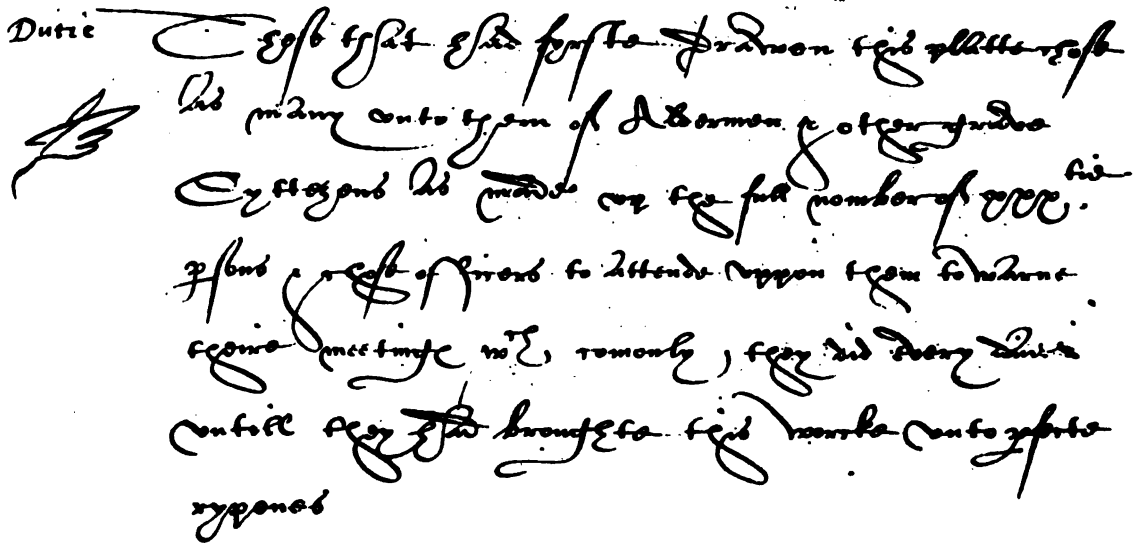 Dutie
Those that had fyrste drawen this platte chose
as many unto them of Aldermen & other grave
Cyttezens as made up the full nomber of xxx tie
psons & chose officers to attende uppon them to warne
theire meetinge wch, comonly, they did every daie
untill they had broughte this worcke unto pfecte
rypenes